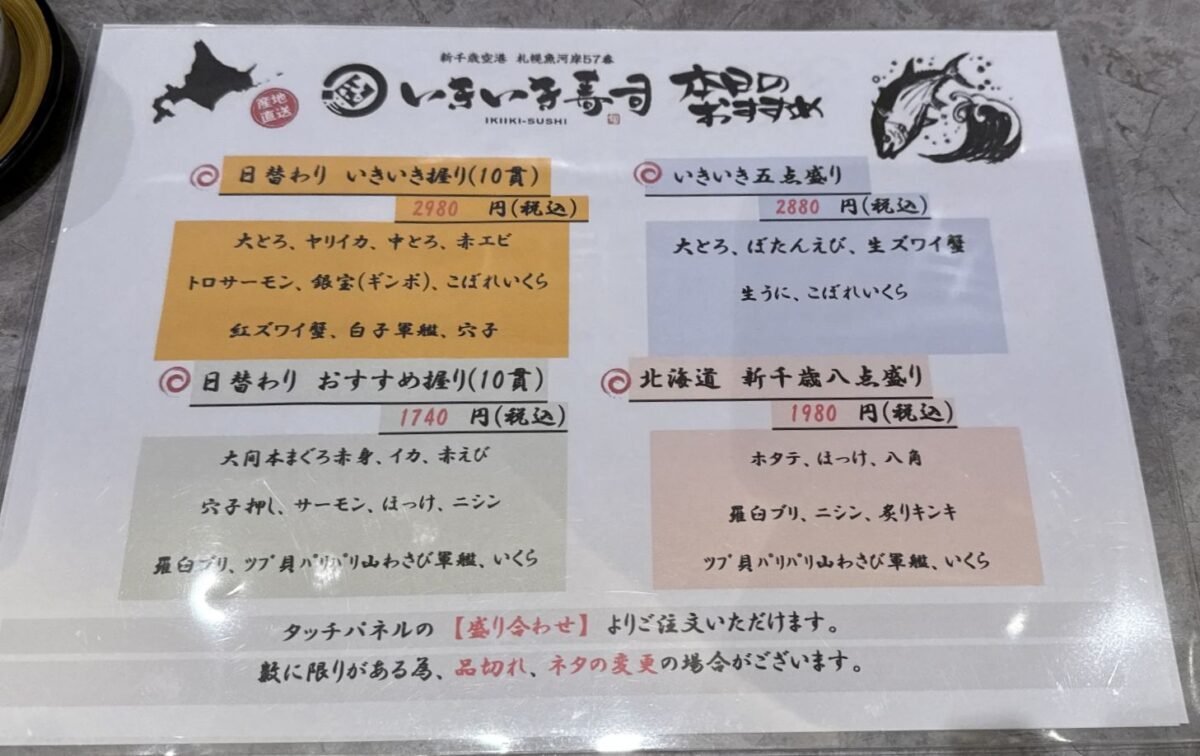 新千歳空港 札幌魚河岸57番
産地
直送
いきいき寿司
IKIIKI-SUSHI
本日の
おすすめ
日替わり いきいき握り(10貫)
2980 円(税込)
大とろ、ヤリイカ、中とろ、赤エビ
トロサーモン、銀宝(ギンポ)、こぼれいくら
紅ズワイ蟹、白子軍艦、穴子
いきいき五点盛り
2880 円(税込)
大とろ、ぼたんえび、生ズワイ蟹
生うに、こぼれいくら
日替わり おすすめ握り(10貫)
1740 円(税込)
大間本まぐろ赤身、イカ、赤えび
穴子押し、サーモン、ほっけ、ニシン
羅臼ブリ、ツブ貝パリパリ山わさび軍艦、いくら
北海道 新千歳八点盛り
1980 円(税込)
ホタテ、ほっけ、八角
羅臼ブリ、ニシン、炙りキンキ
ツブ貝パリパリ山わさび軍艦、いくら
タッチパネルの【盛り合わせ】よりご注文いただけます。
数に限りがある為、品切れ、ネタの変更の場合がございます。